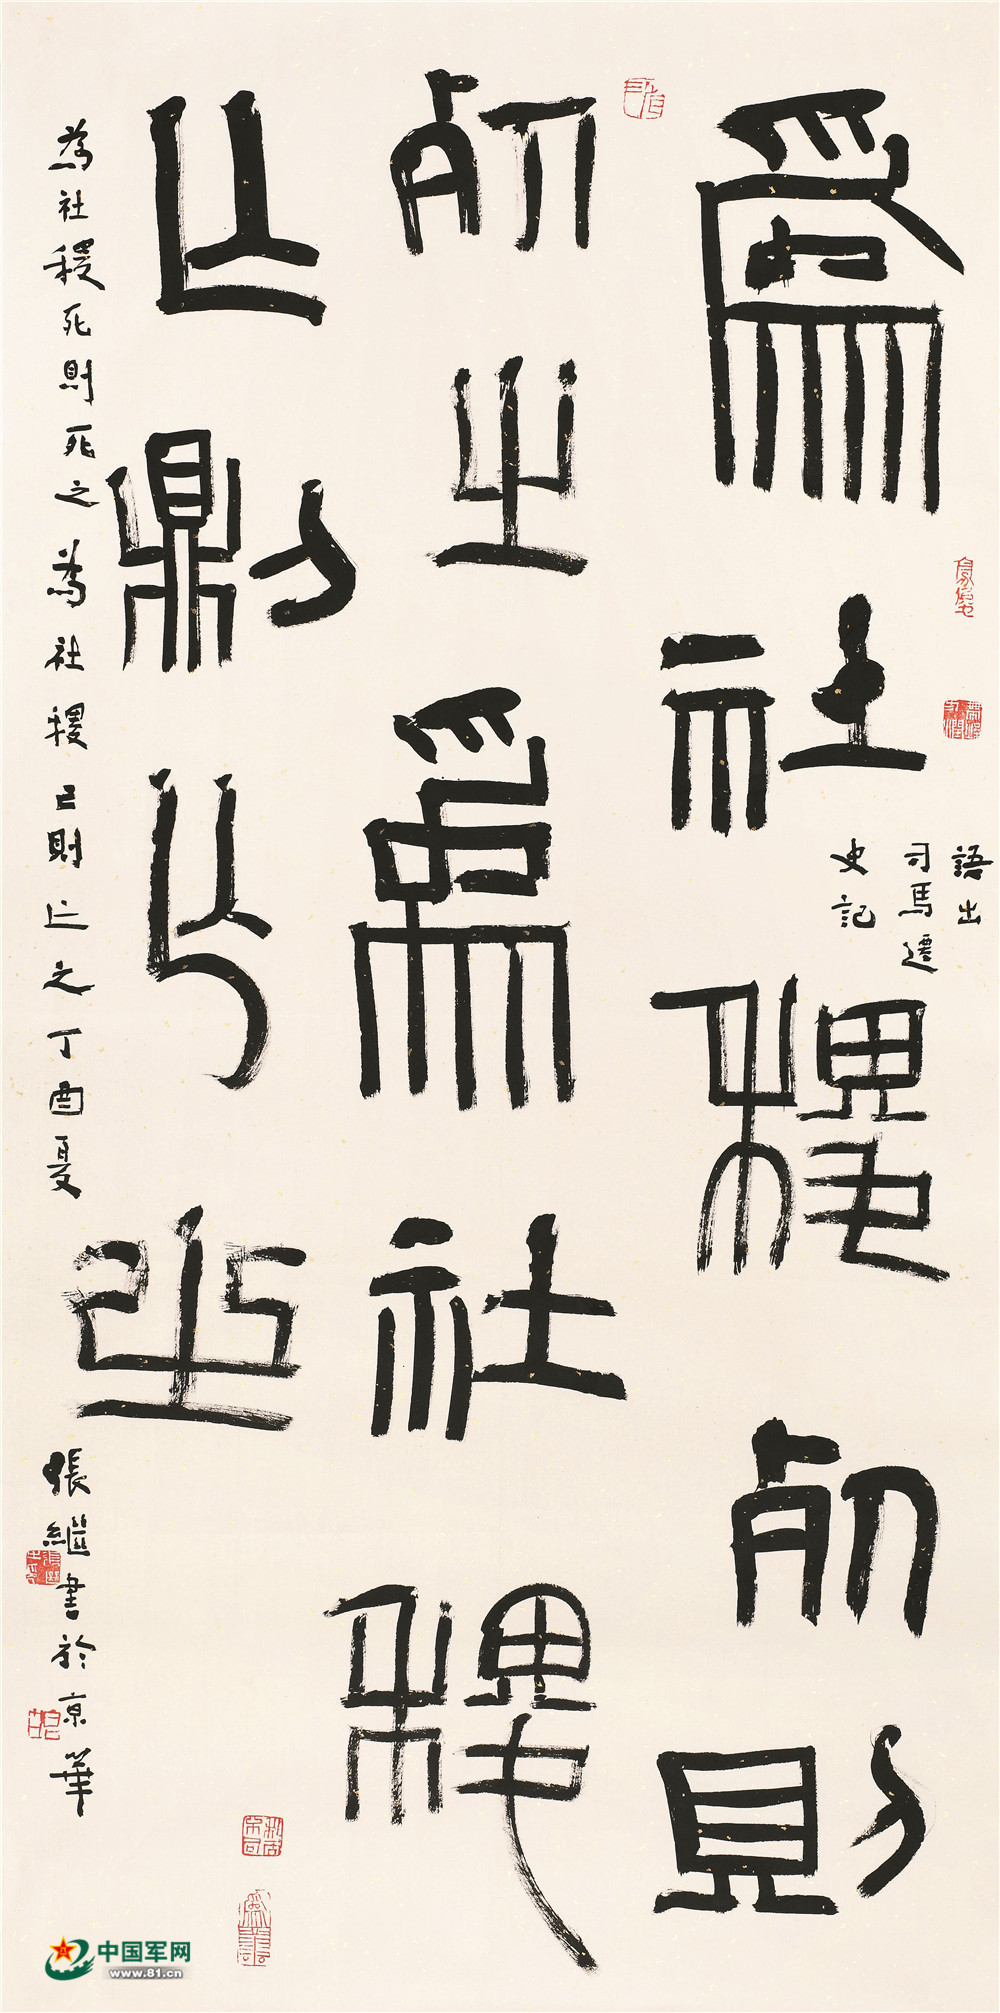 為社稷死則
語出
司馬遷
史記
死之為社稷
亡則亡之
為社稷死則死之為社稷亡則亡之丁酉夏張繼書於京華
中国军网
www.81.cn